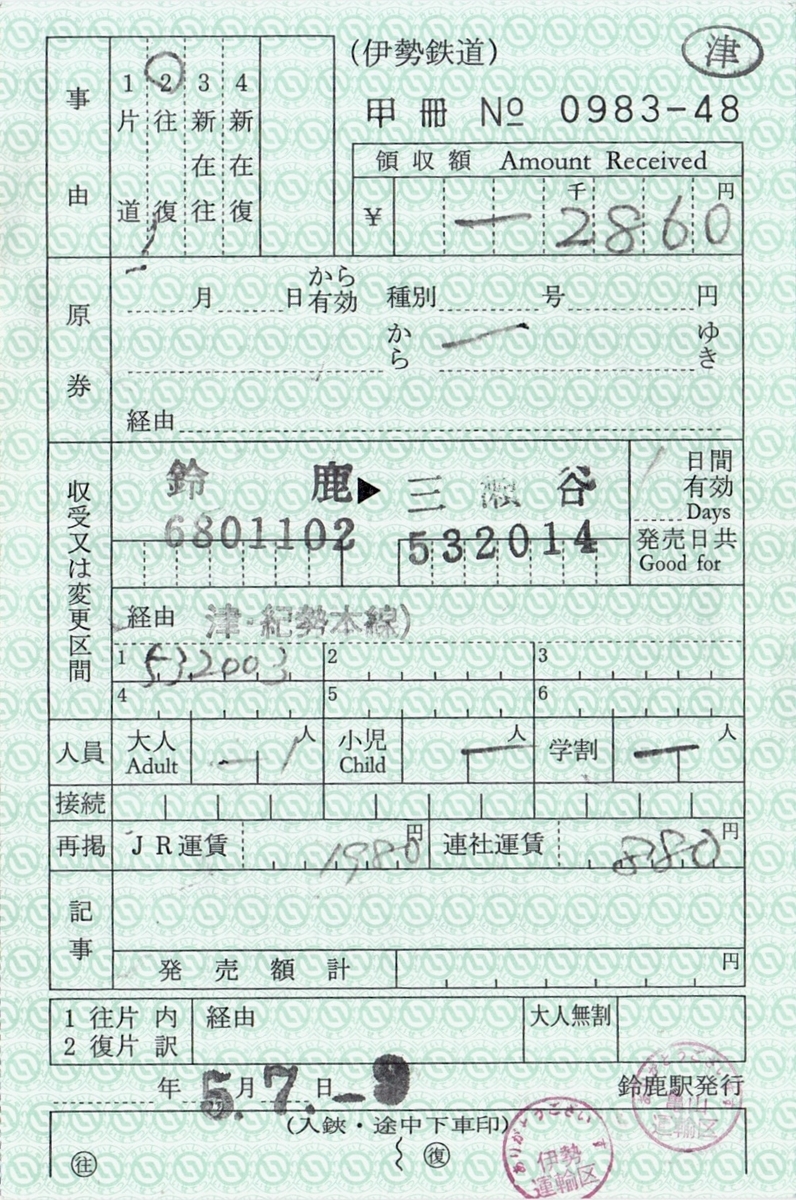 (伊勢鉄道) 津
甲冊 № 0983-48
事由
1 片道 ② 往復 3 新在往 4 新在復
領収額 Amount Received
¥ — 千 2860 円
原券
月 日 から有効 種別 号 円
から — ゆき
経由
収受又は変更区間
鈴鹿▶三瀬谷
6801102 532014
1 日間有効 Days
発売日共 Good for
経由 津・紀勢本線)
1 532003 2 3
4 5 6
人員 大人 Adult 1 人 小児 Child — 人 学割 — 人
接続
再掲 JR運賃 1980 円 連社運賃 880 円
記事
発売額計 円
1 往片 内訳 経由 大人無割
2 復片
年 5.月 7.日 -8 鈴鹿駅発行
(入鋏・途中下車印)
往 復
ありがとうございます 伊勢運輸区
ありがとうございます 亀山運輸区